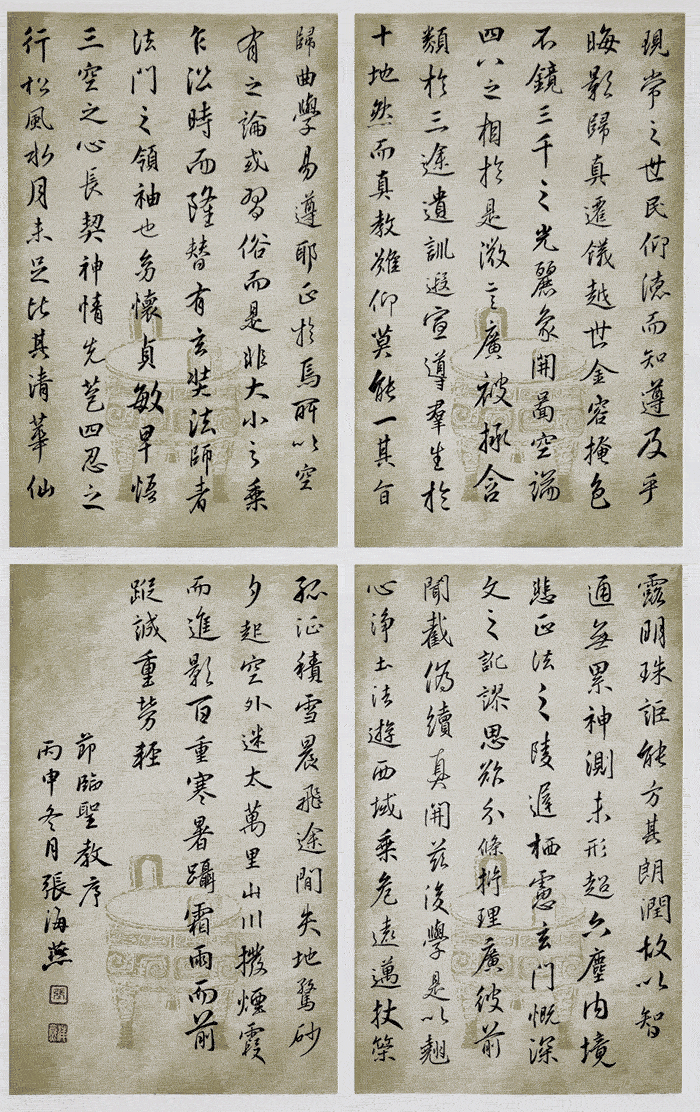 現常之世民仰德而知遵及乎
晦影歸真遷儀越世金容掩色
不鏡三千之光麗象開圖空端
四八之相於是微言廣被拯含
類於三途遺訓遐宣導羣生於
十地然而真教難仰莫能一其旨
歸曲學易遵耶正於焉所以空
有之論或習俗而是非大小之乘
乍沿時而隆替有玄奘法師者
法門之領袖也幼懷貞敏早悟
三空之心長契神情先苞四忍之
行松風水月未足比其清華仙
露明珠詎能方其朗潤故以智
通無累神測未形超六塵内境
悲正法之陵遲栖慮玄門慨深
文之訛謬思欲分條析理廣彼前
聞截偽續真開茲後學是以翹
心淨土法遊西域乘危遠邁杖策
孤征積雪晨飛途間失地驚砂
夕起空外迷太萬里山川撥煙霞
而進影百重寒暑躡霜雨而前
蹤誠重勞輕
節臨聖教序
丙申冬月張海燕